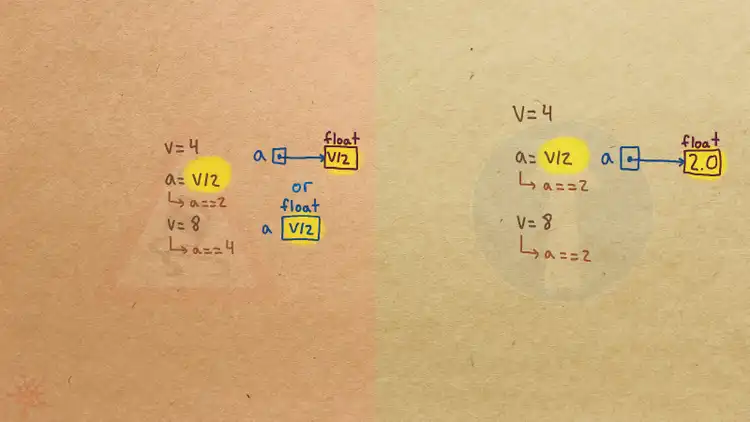 V=4
a= V/2
a==2
V=8
a==4
float
a V/2
or
float
a V/2
V=4
a= V/2
a==2
V=8
a==2
float
a 2.0